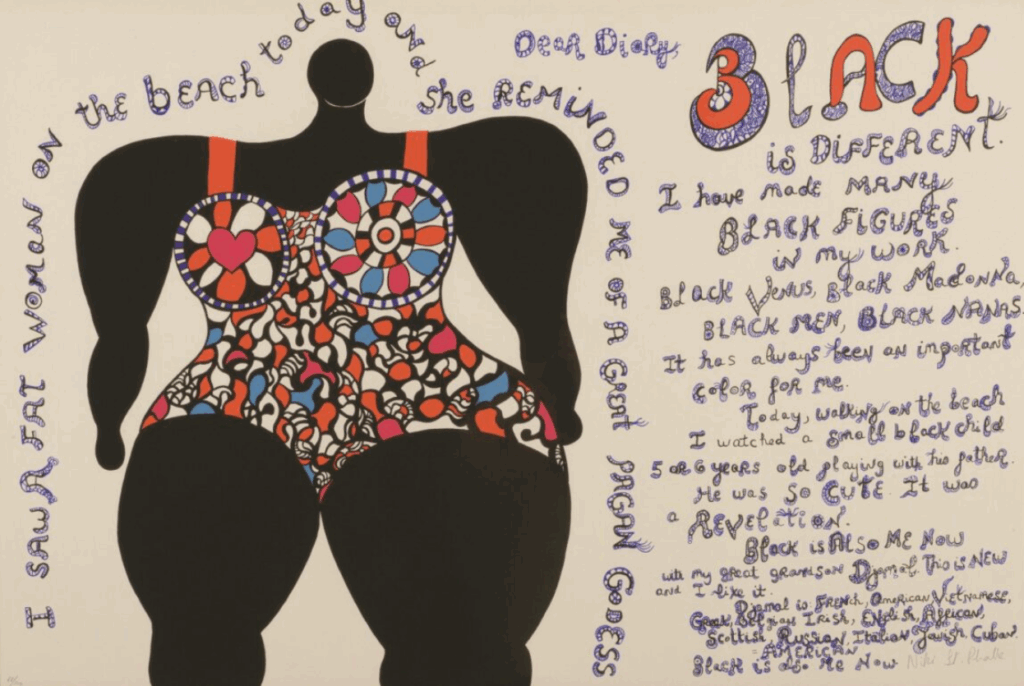 I SAW A FAT WOMAN ON the bEACH today and she REMINDED ME OF A Great PAGAN GODESS
Dear Diary,
BlACK
is DiFFERENT.
I have made MANY
BLACK FIGURES
in my WORK.
BLack Venus, Black Madonna,
BLACK MEN, BLACK NANAS.
It has always been an important
color for me.
Today, walking on the beach
I watched a small black child
5 or 6 years old playing with his father.
He was SO CUTE. It was
a REVElatioN.
Black is ALSO ME NOW
with my great grandson Djamal. This is NEW
and I like it.
Djamal is FRENCH, American, Vietnamese,
Greek, Belgian, Irish, ENglish, African,
Scottish, Russian, Italian, Jewish, Cuban.
AMERICAN
Black is also Me Now
Niki St. Phalle